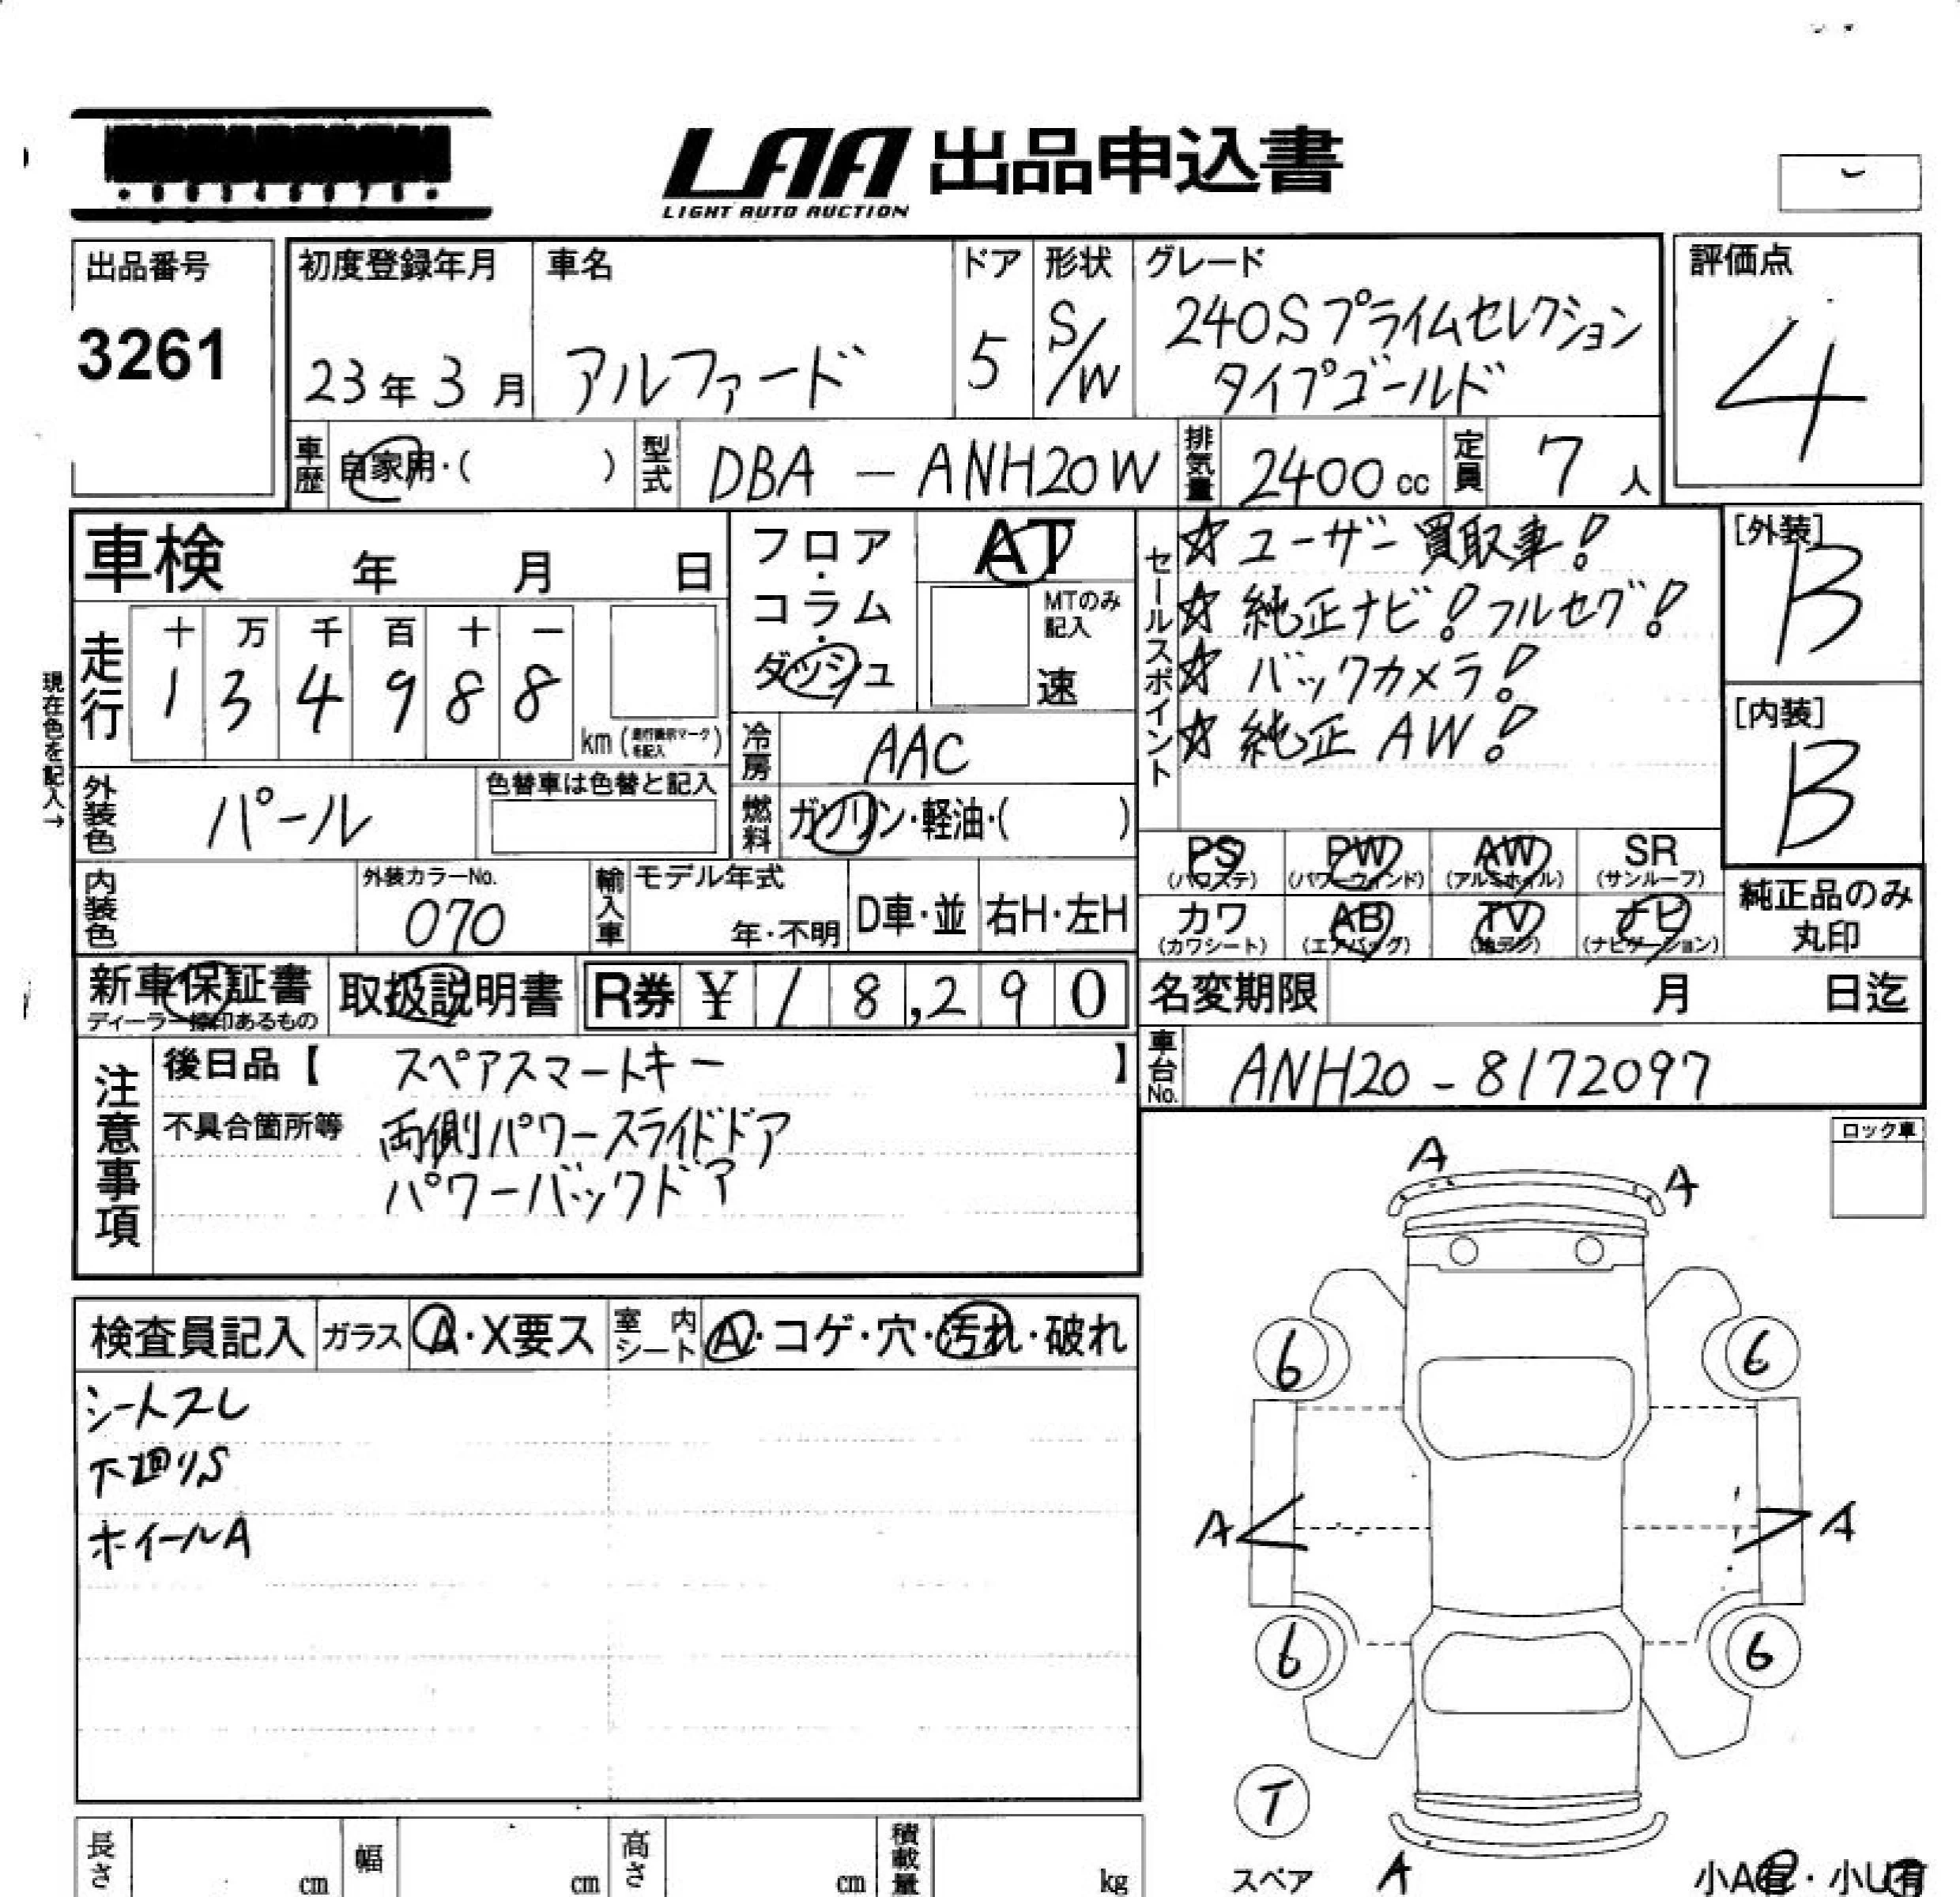 LAA 出品申込書
LIGHT AUTO AUCTION
出品番号
3261
初度登録年月
23年3月
車名
アルファード
ドア
5
形状
S/W
グレード
240Sプライムセレクション
タイプゴールド
評価点
4
車歴 自家用・( )
型式 DBA-ANH20W
排気量 2400cc
定員 7人
車検 年 月 日
フロア・コラム・ダッシュ
AT
MTのみ記入
速
セールスポイント
☆ユーザー買取車!
☆純正ナビ!フルセグ!
☆バックカメラ!
☆純正AW!
[外装]
B
[内装]
B
現在色を記入→
走行
十 万 千 百 十 一
1 3 4 9 8 8
km(走行表示マークを記入)
冷房 AAC
外装色 パール
色替車は色替と記入
燃料 ガソリン・軽油・( )
PS (パワステ)
PW (パワーウィンド)
AW (アルミホイル)
SR (サンルーフ)
カワ (カワシート)
AB (エアバッグ)
TV (地デジ)
ナビ (ナビゲーション)
純正品のみ
丸印
内装色
外装カラーNo.
070
輸入車
モデル年式
年・不明
D車・並
右H・左H
新車保証書
ディーラー捺印あるもの
取扱説明書
R券 ¥ 18,290
名変期限 月 日迄
車台No. ANH20-8172097
注意事項
後日品【 スペアスマートキー 】
不具合箇所等 両側パワースライドドア
パワーバックドア
ロック車
検査員記入
ガラス A・X要ス
室内シート A・コゲ・穴・汚れ・破れ
シートスレ
下廻りS
ホイールA
A
A
6
6
A
A
6
6
T
スペア
A
小A有・小U有
長さ cm
幅 cm
高さ cm
積載量 kg